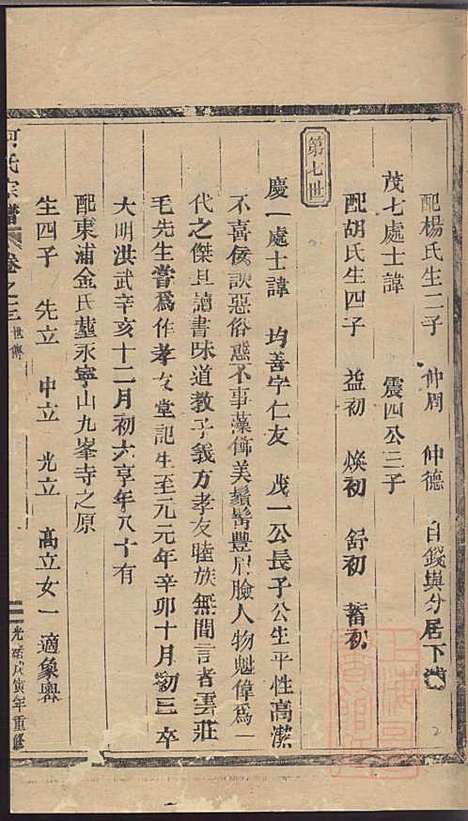 配楊氏生二子 仲周 仲德 自錢與分居下
茂七處士諱 震四公三子
配胡氏生四子 益初 煥初 舒初 蓄初
第七世
慶一處士諱 均善字仁友 茂一公長子公生平性高潔
不喜侫諛惡俗惑不事藻飾美鬚髯豐 臉人物魁偉為一
代之傑且讀書味道教子義方孝友睦族無間言者雲莊
毛先生嘗為作孝友堂記生至元元年辛卯十月初三卒
大明洪武辛亥十二月初六享年八十有
配東浦金氏墓永寧山九峯寺之原
生四子 先立 中立 光立 高立女一 適象嶴
何氏宗譜 卷之三 世傳
光緒戊寅年重修